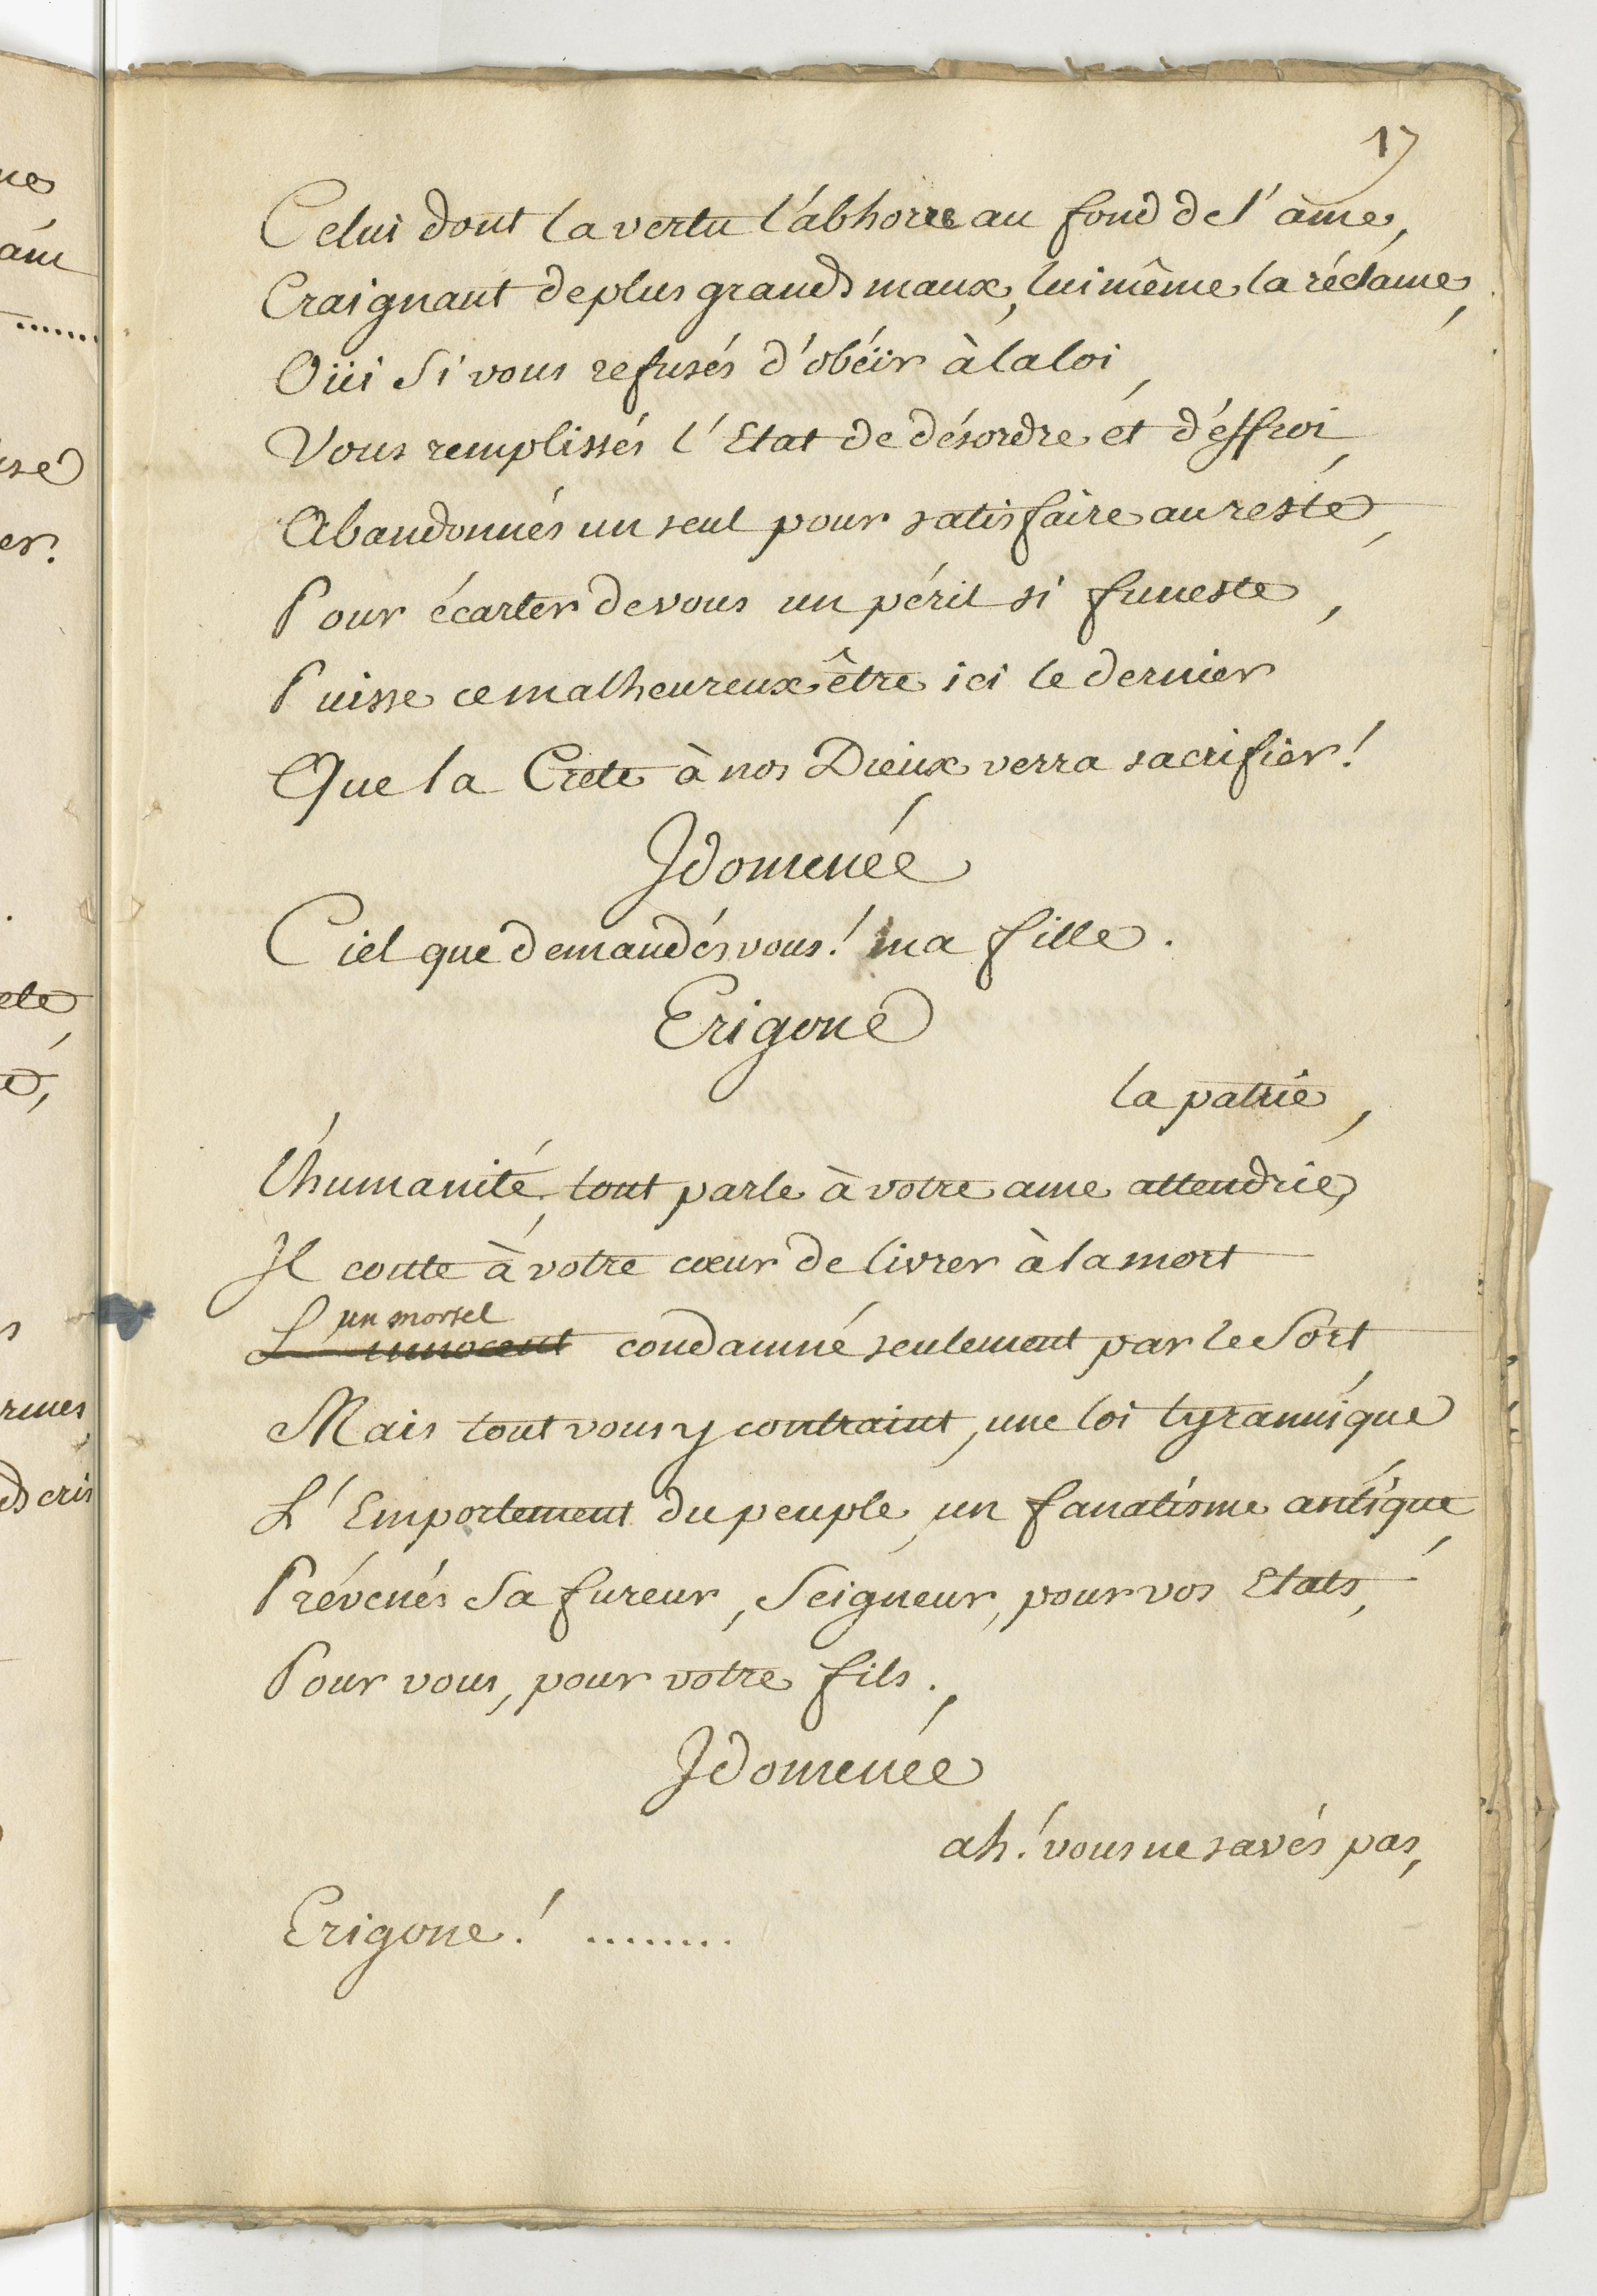 17
Celui dont la vertu l'abhorre au fond de l'ame,
Craignant de plus grands maux, lui même la réclame,
Oüi si vous refusés d'obéïr à la loi,
Vous remplissés l'Etat de désordre et d'éffroi,
Abandonnés un seul pour satisfaire au reste,
Pour écarter de vous un péril si funeste,
Puisse ce malheureux être ici le dernier
Que la Crete à nos Dieux verra sacrifier!
Idomenée
Ciel que demandés vous! ma fille.
Erigone
la patrie,
L'humanité, tout parle à votre ame attendrie,
Il coute à votre cœur de livrer à la mort
un mortel
L'innocent condamné seulement par le Sort,
Mais tout vous y contraint, une loi tyrannique,
L'Emportement du peuple, un fanatisme antique,
Prévenés sa fureur, Seigneur, pour vos Etats,
Pour vous, pour votre fils.,
Idomenée
ah! vous ne savés pas,
Erigone! ........